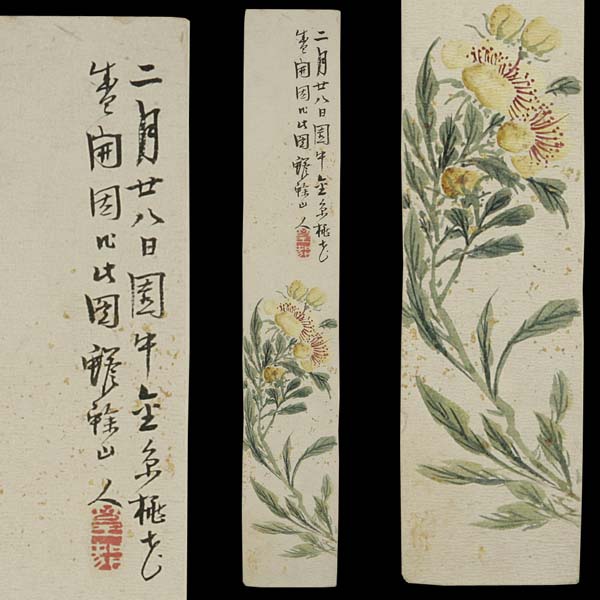 二月廿八日園中金糸桃花
盛開因此圖山人
二月廿八日園中金糸桃花
盛開因此圖山人